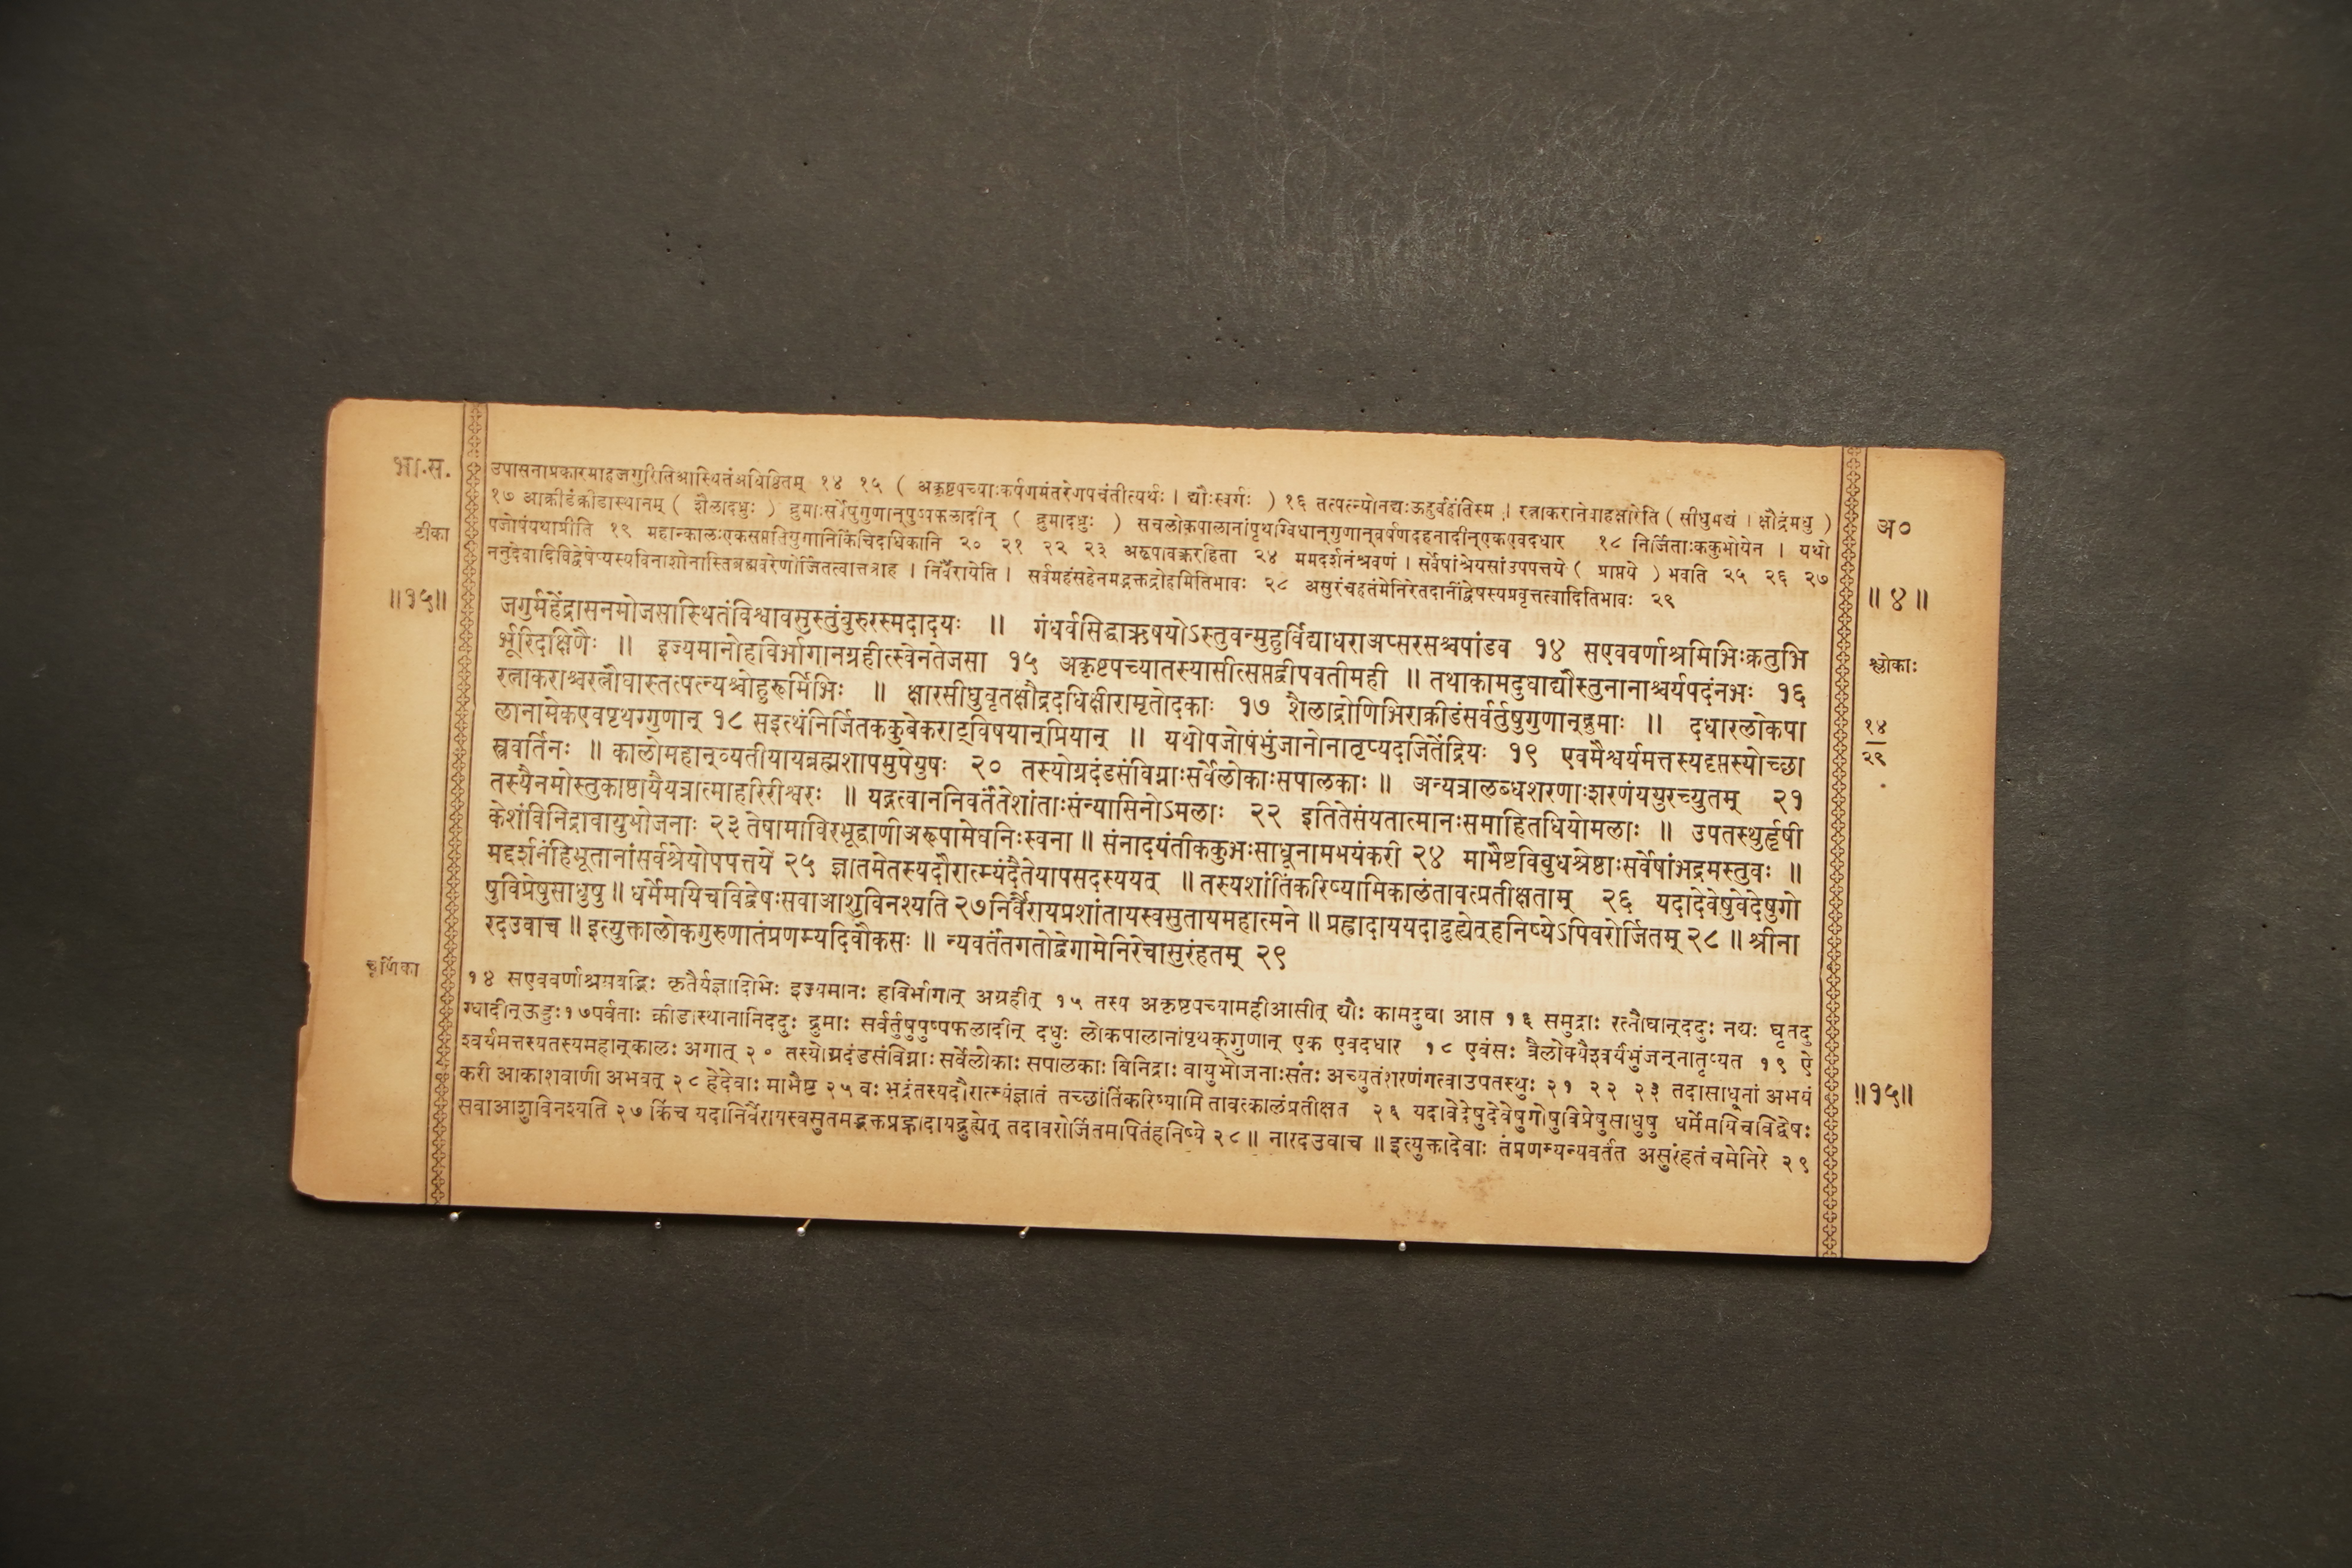 भा.स.
उपासनाप्रकारमाहजगुरितिआस्थितंअधिष्ठितम् १४ १५ ( अकृष्टपच्याःकर्षणमंतरेणपचंतीत्यर्थः । द्यौःस्वर्गः ) १६ तत्पत्न्योनद्यःऊहुर्वहंतिस्म । रत्नाकरानेवाहक्षारेति ( सीधुमद्यं । क्षौद्रंमधु )
टीका
१७ आक्रीडंक्रीडास्थानम् ( शैलादधुः ) द्रुमाःसर्वेषुगुणान्पुष्पफलादीन् ( द्रुमादधुः ) सचलोकपालानांपृथग्विधान्गुणान्वर्षणदहनादीन्एकएवदधार १८ निर्जिताःककुभोयेन । यथो
अ०
पजोषंयथाप्रीति १९ महान्कालःएकसप्ततियुगानिकिंचिदधिकानि २० २१ २२ २३ अरूपावक्तृरहिता २४ ममदर्शनंश्रवणं । सर्वेषांश्रेयसांउपपत्तये ( प्राप्तये ) भवति २५ २६ २७
ननुदेवादिविद्वेषेप्यस्यविनाशोनास्तिब्रह्मवरेणोर्जितत्वात्तत्राह । निर्वैरायेति । सर्वमहंसहेनमद्भक्तद्रोहमितिभावः २८ असुरंचहतंमेनिरेतदानींद्वेषस्यप्रवृत्तत्वादितिभावः २९
॥१५॥
॥ ४ ॥
जगुर्महेंद्रासनमोजसास्थितंविश्वावसुस्तुंबुरुरस्मदादयः ॥ गंधर्वसिद्धाऋषयोऽस्तुवन्मुहुर्विद्याधराअप्सरसश्चपांडव १४ सएववर्णाश्रमिभिःक्रतुभि
र्भूरिदक्षिणैः ॥ इज्यमानोहविर्भागानग्रहीत्स्वेनतेजसा १५ अकृष्टपच्यातस्यासीत्सप्तद्वीपवतीमही ॥ तथाकामदुघाद्यौस्तुनानाश्चर्यपदंनभः १६
श्लोकाः
रत्नाकराश्चरत्नौघास्तत्पत्न्यश्चोहुरूर्मिभिः ॥ क्षारसीधुघृतक्षौद्रदधिक्षीरामृतोदकाः १७ शैलाद्रोणिभिराक्रीडंसर्वर्तुषुगुणान्द्रुमाः ॥ दधारलोकपा
१४
२९
लानामेकएवपृथग्गुणान् १८ सइत्थंनिर्जितककुबेकराट्विषयान्प्रियान् ॥ यथोपजोषंभुंजानोनातृप्यदजितेंद्रियः १९ एवमैश्वर्यमत्तस्यदृप्तस्योच्छा
स्त्रवर्तिनः ॥ कालोमहान्व्यतीयायब्रह्मशापमुपेयुषः २० तस्योग्रदंडसंविग्नाःसर्वेलोकाःसपालकाः ॥ अन्यत्रालब्धशरणाःशरणंययुरच्युतम् २१
तस्यैनमोस्तुकाष्ठायैयत्रात्माहरिरीश्वरः ॥ यद्गत्वाननिवर्तंतेशांताःसंन्यासिनोऽमलाः २२ इतितेसंयतात्मानःसमाहितधियोमलाः ॥ उपतस्थुर्हृषी
केशंविनिद्रावायुभोजनाः २३ तेषामाविरभूद्वाणीअरूपामेघनिःस्वना ॥ संनादयंतीककुभःसाधूनामभयंकरी २४ माभैष्टविबुधश्रेष्ठाःसर्वेषांभद्रमस्तुवः ॥
मद्दर्शनंहिभूतानांसर्वश्रेयोपपत्तये २५ ज्ञातमेतस्यदौरात्म्यंदैतेयापसदस्ययत् ॥ तस्यशांतिंकरिष्यामिकालंतावत्प्रतीक्षताम् २६ यदादेवेषुवेदेषुगो
षुविप्रेषुसाधुषु ॥ धर्मेमयिचविद्वेषःसवाआशुविनश्यति २७निर्वैरायप्रशांतायस्वसुतायमहात्मने ॥ प्रह्रादाययदाद्रुह्येद्हनिष्येऽपिवरोर्जितम् २८ ॥ श्रीना
रदउवाच ॥ इत्युक्तालोकगुरुणातंप्रणम्यदिवौकसः ॥ न्यवर्तंतगतोद्वेगामेनिरेचासुरंहतम् २९
चूर्णिका
१४ सएववर्णाश्रमवद्भिः कृतैर्यज्ञादिभिः इज्यमानः हविर्भागान् अग्रहीत् १५ तस्य अकृष्टपच्यामहीआसीत् द्यौः कामदुघा आस १६ समुद्राः रत्नौघान्ददुः नद्यः घृतदु
ग्धादीन्ऊहुः१७पर्वताः क्रीडास्थानानिददुः द्रुमाः सर्वर्तुषुपुष्पफलादीन् दधुः लोकपालानांपृथक्गुणान् एक एवदधार १८ एवंसः त्रैलोक्यैश्वर्यंभुंजन्नातृप्यत १९ ऐ
श्वर्यमत्तस्यतस्यमहान्कालः अगात् २० तस्योग्रदंडसंविग्नाः सर्वेलोकाः सपालकाः विनिद्राः वायुभोजनाःसंतः अच्युतंशरणंगत्वाउपतस्थुः २१ २२ २३ तदासाधूनां अभयं
॥१५॥
करी आकाशवाणी अभवत् २८ हेदेवाः माभैष्ट २५ वः भद्रंतस्यदौरात्म्यंज्ञातं तच्छांतिंकरिष्यामि तावत्कालंप्रतीक्षत २६ यदावेदेषुदेवेषुगोषुविप्रेषुसाधुषु धर्मेमयिचविद्वेषः
सवाआशुविनश्यति २७ किंच यदानिर्वैरायस्वसुतमद्भक्तप्रह्लादायद्रुह्येत् तदावरोर्जितमपितंहनिष्ये २८ ॥ नारदउवाच ॥ इत्युक्तादेवाः तंप्रणम्यन्यवर्तंत असुरंहतंचमेनिरे २९